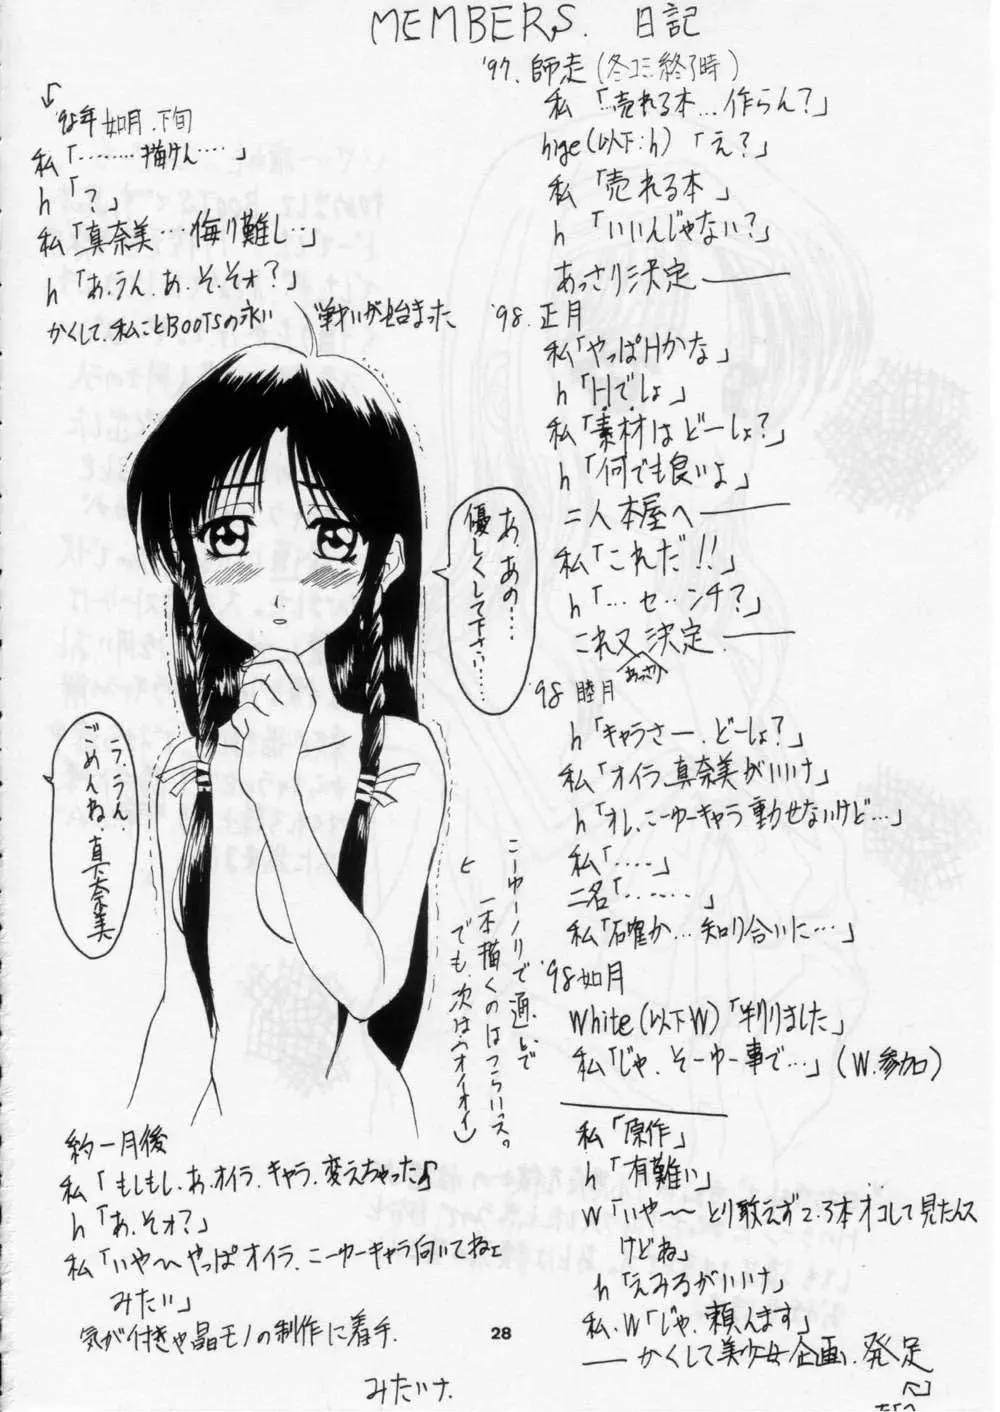 MEMBERS. 日記
'97. 師走(冬コミ終了時)
私「…売れる本…作らん?」
hige(以下:h)「え?」
私「売れる本」
h「いいんじゃない?」
あっさり決定――
'98. 正月
私「やっぱHかな」
h「Hでしょ」
私「素材はどーしょ?」
h「何でも良いよ」
二人本屋へ――
私「これだ!!」
h「…セ…ンチ?」
これ又決定――
あっさり
'98 睦月
h「キャラさー.どーしょ?」
私「オイラ.真奈美がいいナ」
h「オレ.こーゆーキャラ動せないけど…」
私「‥‥」
二名「‥‥‥」
私「確か…知り合いに…」
'98 如月
White(以下W)「判りました」
私「じゃ.そーゆー事で…」(W.参加)
私「原作」
h「有難い」
W「いや〜〜とり敢えず2.3本オコして見たんス
けどね」
h「えみるがいいナ」
私.W「じゃ.頼んます」
――かくして美少女企画.発足
'98年 如月.下旬
私「………描けん……」
h「?」
私「真奈美…侮り難し‥」
h「あ.うん.あ.そ.そォ?」
かくして.私ことBOOTSの永い戦いが始まった
あ、あの‥‥
優しくして下さい……
う、うん.
ごめんね.真奈美
こーゆーノリで通しで
一本描くのはつらいっス。
でも.次はへ(オイオイ)
と
約一月後
私「もしもし.あ.オイラ.キャラ.変えちゃった♪」
h「あ.そォ?」
私「いや〜〜やっぱオイラ.こーゆーキャラ向いてねェ
みたい」
気が付きゃ晶モノの制作に着手.
みたいナ.
28